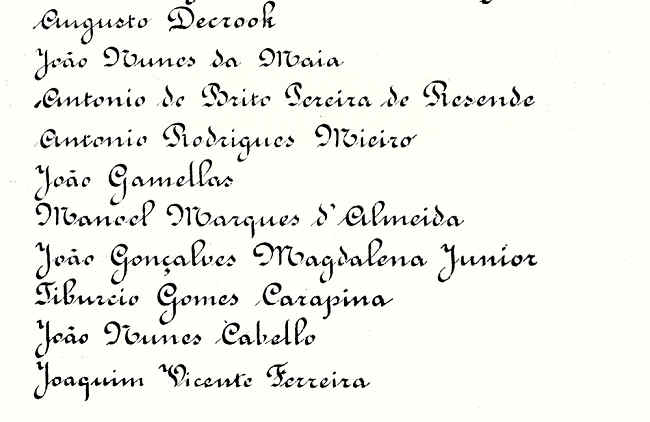 Augusto Decrook
João Nunes da Maia
Antonio de Brito Pereira de Resende
Antonio Rodrigues Mieiro
João Gamellas
Manoel Marques d'Almeida
João Gonçalves Magdalena Junior
Tiburcio Gomes Carapina
João Nunes Cabello
Joaquim Vicente Ferreira